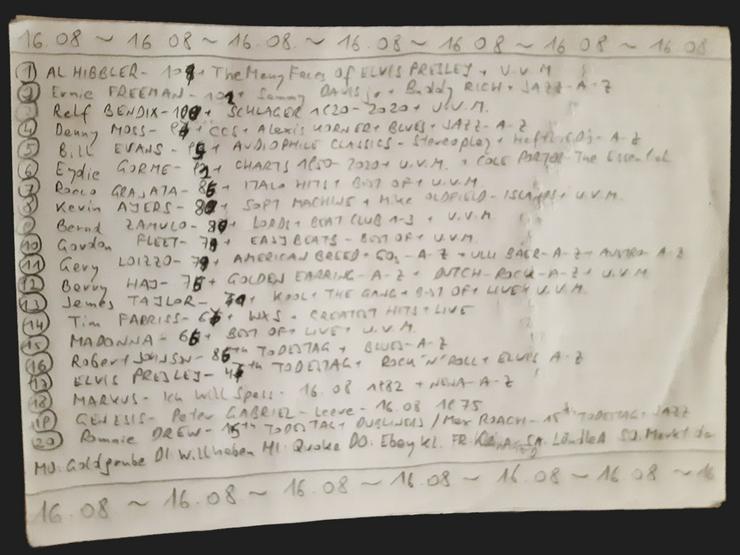 16.08 ~ 16.08 ~ 16.08. ~ 16.08 ~ 16.08 ~ 16.08 ~ 16.08
1 AL HIBBLER - + The Many Faces Of ELVIS PRESLEY + U.V.M
2 Ernie FREEMAN - + Sammy DAVIS jr + Buddy RICH + JAZZ - A-Z
Ralf BENDIX - + SCHLAGER 1920-2020 + U.V.M.
4 Danny MOSS - + CCS + Alexis KORNER + BLUES + JAZZ - A-Z
5 Bill EVANS - + AUDIOPHILE CLASSICS - Stereoplay + A-Z
6 Eydie GORME - + CHARTS 1950-2020 + U.V.M. + COLE PORTER - The Essential
7 Rocco GRANATA - + ITALO HITS + BEST OF + U.V.M
8 Kevin AYERS - + SOFT MACHINE + Mike OLDFIELD - ISLANDS + U.V.M.
9 Bernd ZAMULO - + LORDS + BEAT CLUB 1-3 + U.V.M
10 Gordon FLEET - + EASYBEATS - BEST OF + U.V.M.
11 Gary LOIZZO - + AMERICAN BREED + 60s - A-Z + ULLI BAER - A-Z + AUSTRO - A-Z
12 Barry HAY - + GOLDEN EARRING - A-Z + DUTCH-ROCK - A-Z + U.V.M
13 James TAYLOR - + KOOL + THE GANG + BEST OF + LIVE + U.V.M.
14 Tim FARRISS - + INXS + GREATEST HITS + LIVE
15 MADONNA - + BEST OF + LIVE + U.V.M.
16 Robert JOHNSON - th TODESTAG + BLUES - A-Z
17 ELVIS PRESLEY - th TODESTAG + ROCK'N'ROLL + ELVIS A-Z
18 MARKUS - Ich Will Spass - 16.08 1982 + NENA - A-Z
19 GENESIS - Peter GABRIEL - Leave - 16.08 1975
20 Ronnie DREW - 15th TODESTAG + DUBLINERS / Max ROACH - 15th TODESTAG + JAZZ
MO: Goldgrube DI: Willhaben MI: Quoka DO: Ebay Kl. FR: SA: LändleA SO: Markt.de
16.08 ~ 16.08 ~ 16.08 ~ 16.08 ~ 16.08 ~ 16.08 ~ 16